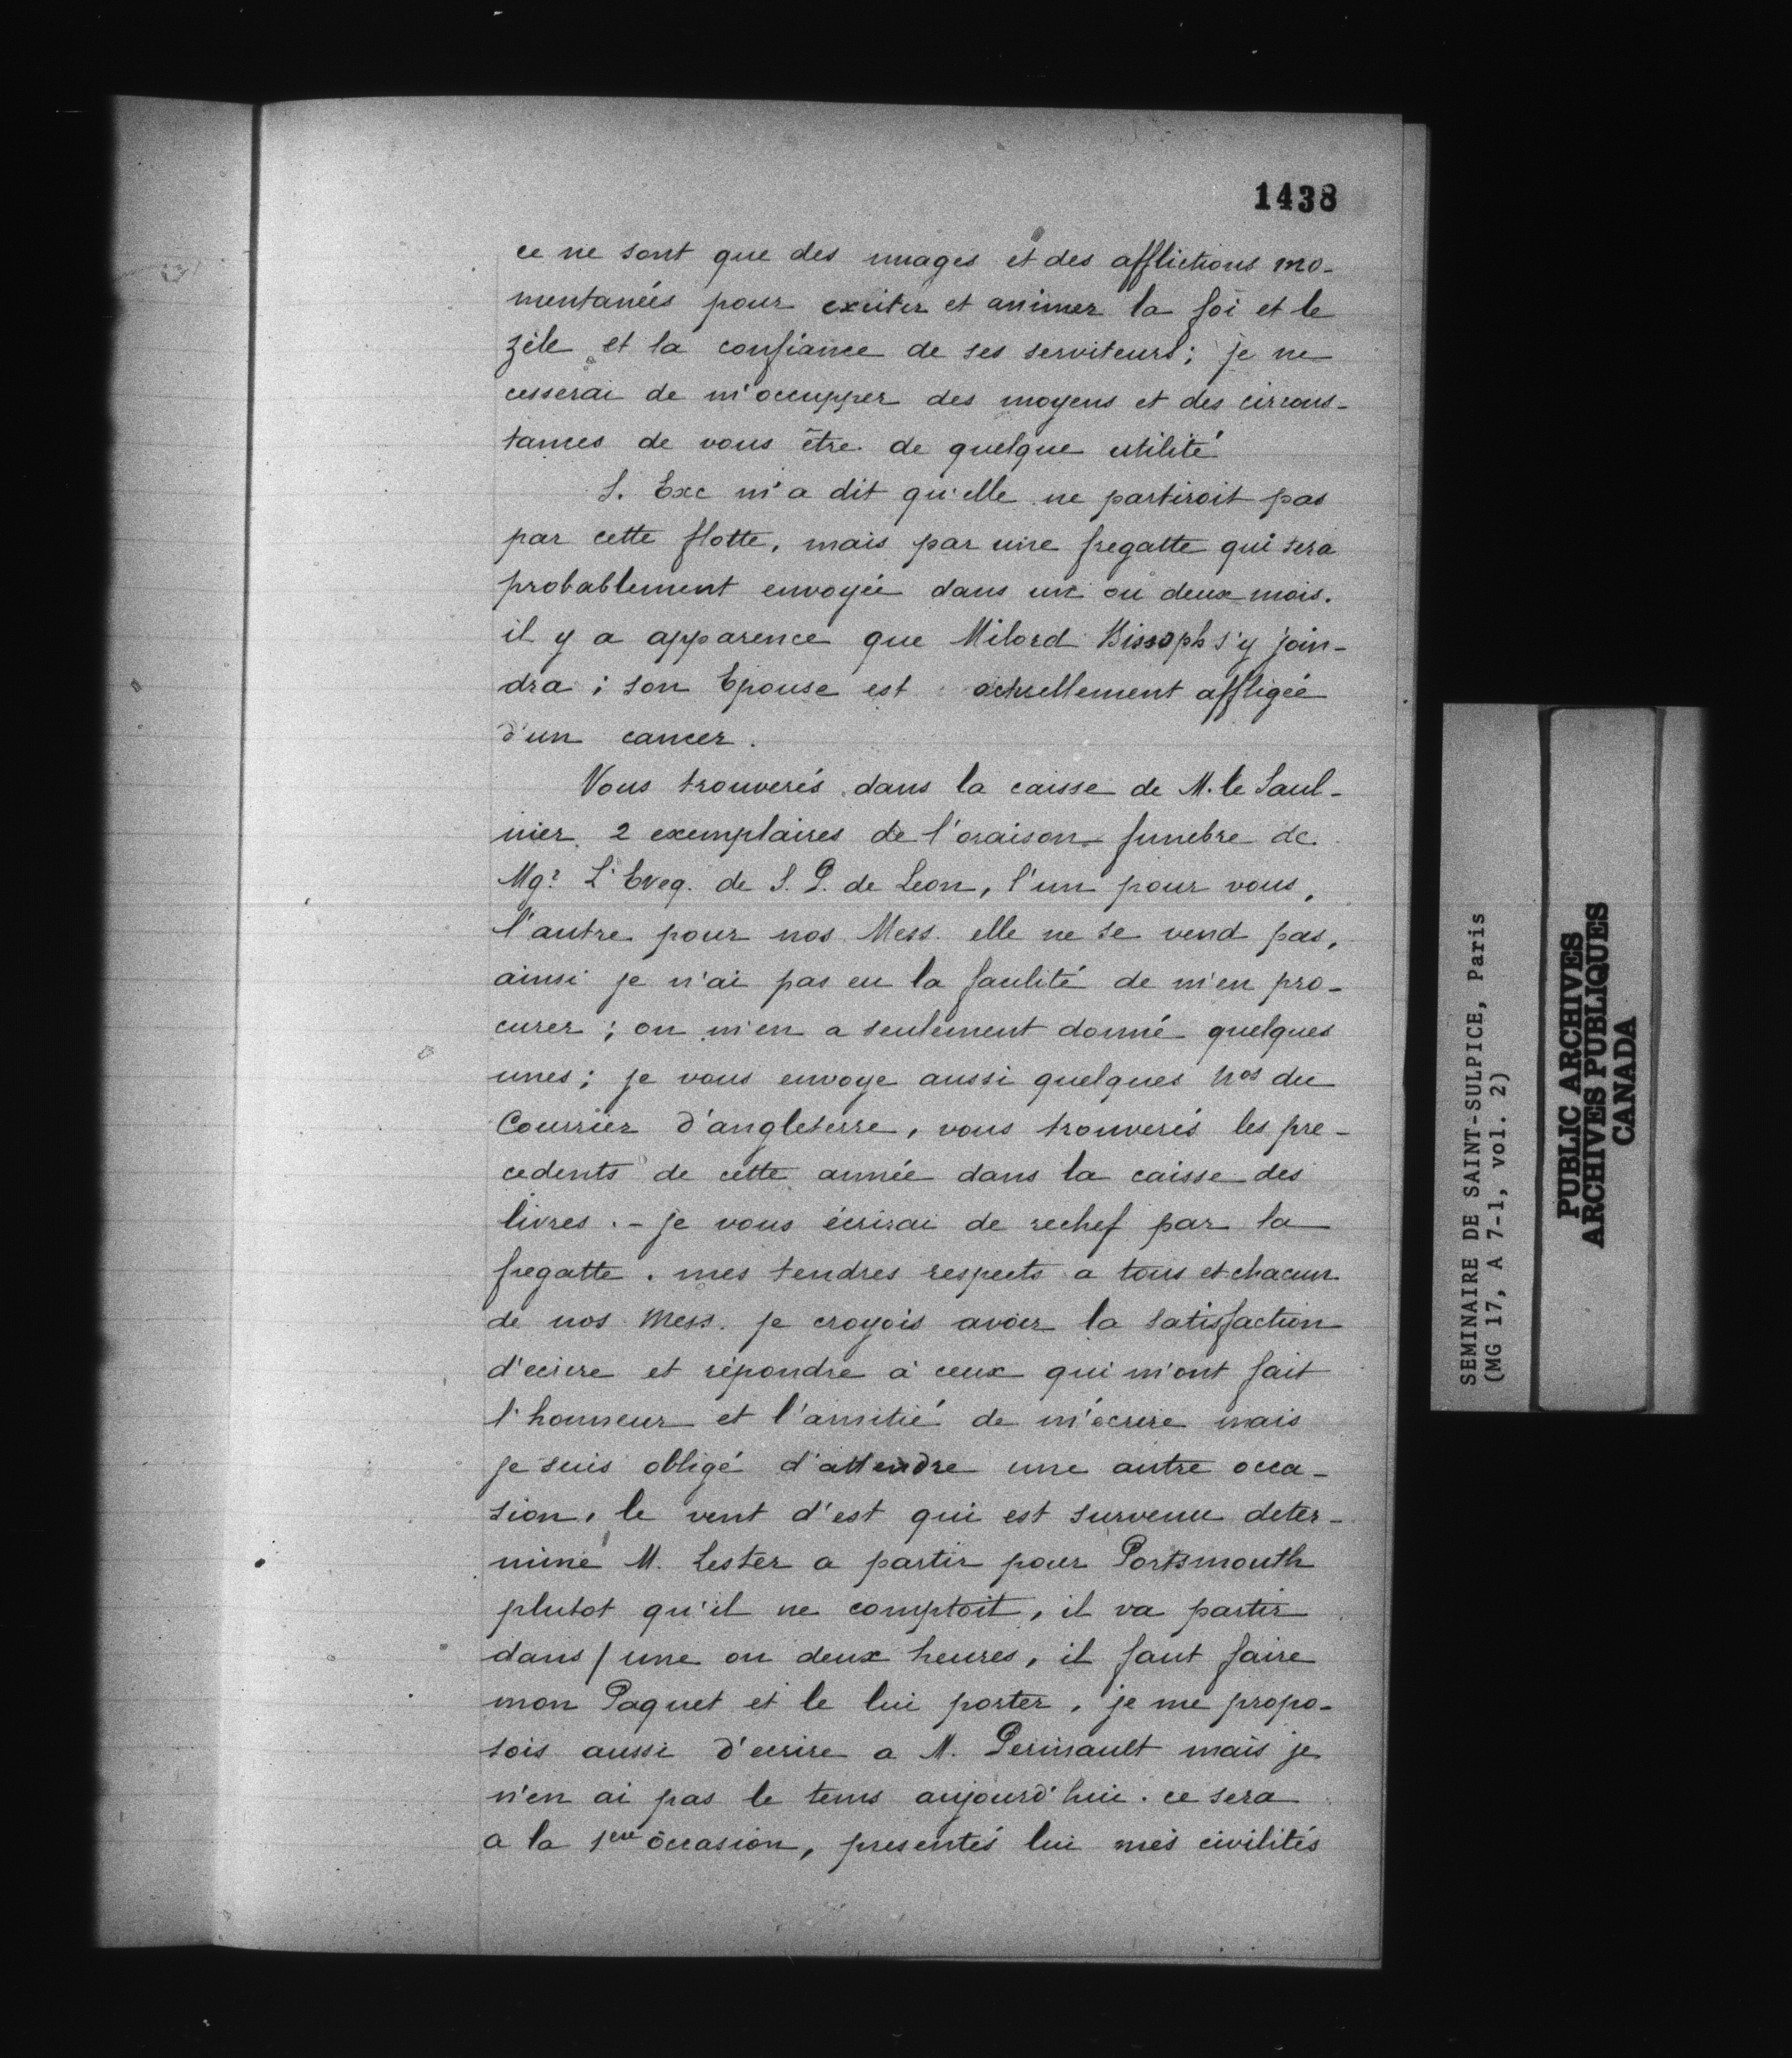 1438
ce ne sont que des nuages et des afflictions mo-
mentanées pour exciter et animer la foi et le
zèle et la confiance de ses serviteurs; je ne
cesserai de m'occupper des moyens et des circons-
tances de vous être de quelque utilité
S. Exc m'a dit qu'elle ne partiroit pas
par cette flotte, mais par une fregatte qui sera
probablement envoyée dans un ou deux mois.
il y a apparence que Milord Bissoph s'y join-
dra; son Epouse est actuellement affligée
d'un cancer.
Vous trouverés dans la caisse de M. le Saul-
nier 2 exemplaires de l'oraison funebre de
Mgr L'Eveq. de S. P. de Leon, l'un pour vous,
l'autre pour nos Mess. elle ne se vend pas,
ainsi je n'ai pas eu la facilité de m'en pro-
curer; on m'en a seulement donné quelques
unes; je vous envoye aussi quelques Nos du
Courrier d'angleterre, vous trouverés les pre-
cedents de cette année dans la caisse des
livres. - je vous écrirai de rechef par la
fregatte. mes tendres respects a tous et chacun
de nos Mess. je croyois avoir la satisfaction
d'ecrire et répondre à ceux qui m'ont fait
l'honneur et l'amitié de m'écrire mais
je suis obligé d'attendre une autre occa-
sion, le vent d'est qui est survenu deter-
mine M. Lester a partir pour Portsmouth
plutot qu'il ne comptoit, il va partir
dans / une ou deux heures, il faut faire
mon Paquet et le lui porter, je me propo-
sois aussi d'ecrire a M. Perinault mais je
n'en ai pas le tems aujourd'hui. ce sera
a la 1ere occasion, presentés lui mes civilités
SEMINAIRE DE SAINT-SULPICE, Paris
(MG 17, A 7-1, vol. 2)
PUBLIC ARCHIVES
ARCHIVES PUBLIQUES
CANADA